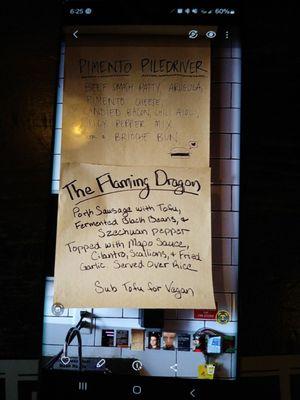 6:25
60%
PIMENTO PILEDRIVER
BEEF SMASH PATTY, ARUGULA,
PIMENTO CHEESE,
CANDIED BACON, CHILI AIOLI,
PEPPER MIX
BRIOCHE BUN
The Flaming Dragon
Pork Sausage with Tofu,
Fermented Black Beans, &
Szechuan pepper
Topped with Mapo Sauce,
Cilantro, Scallions, & Fried
Garlic Served Over Rice
Sub Tofu for Vegan